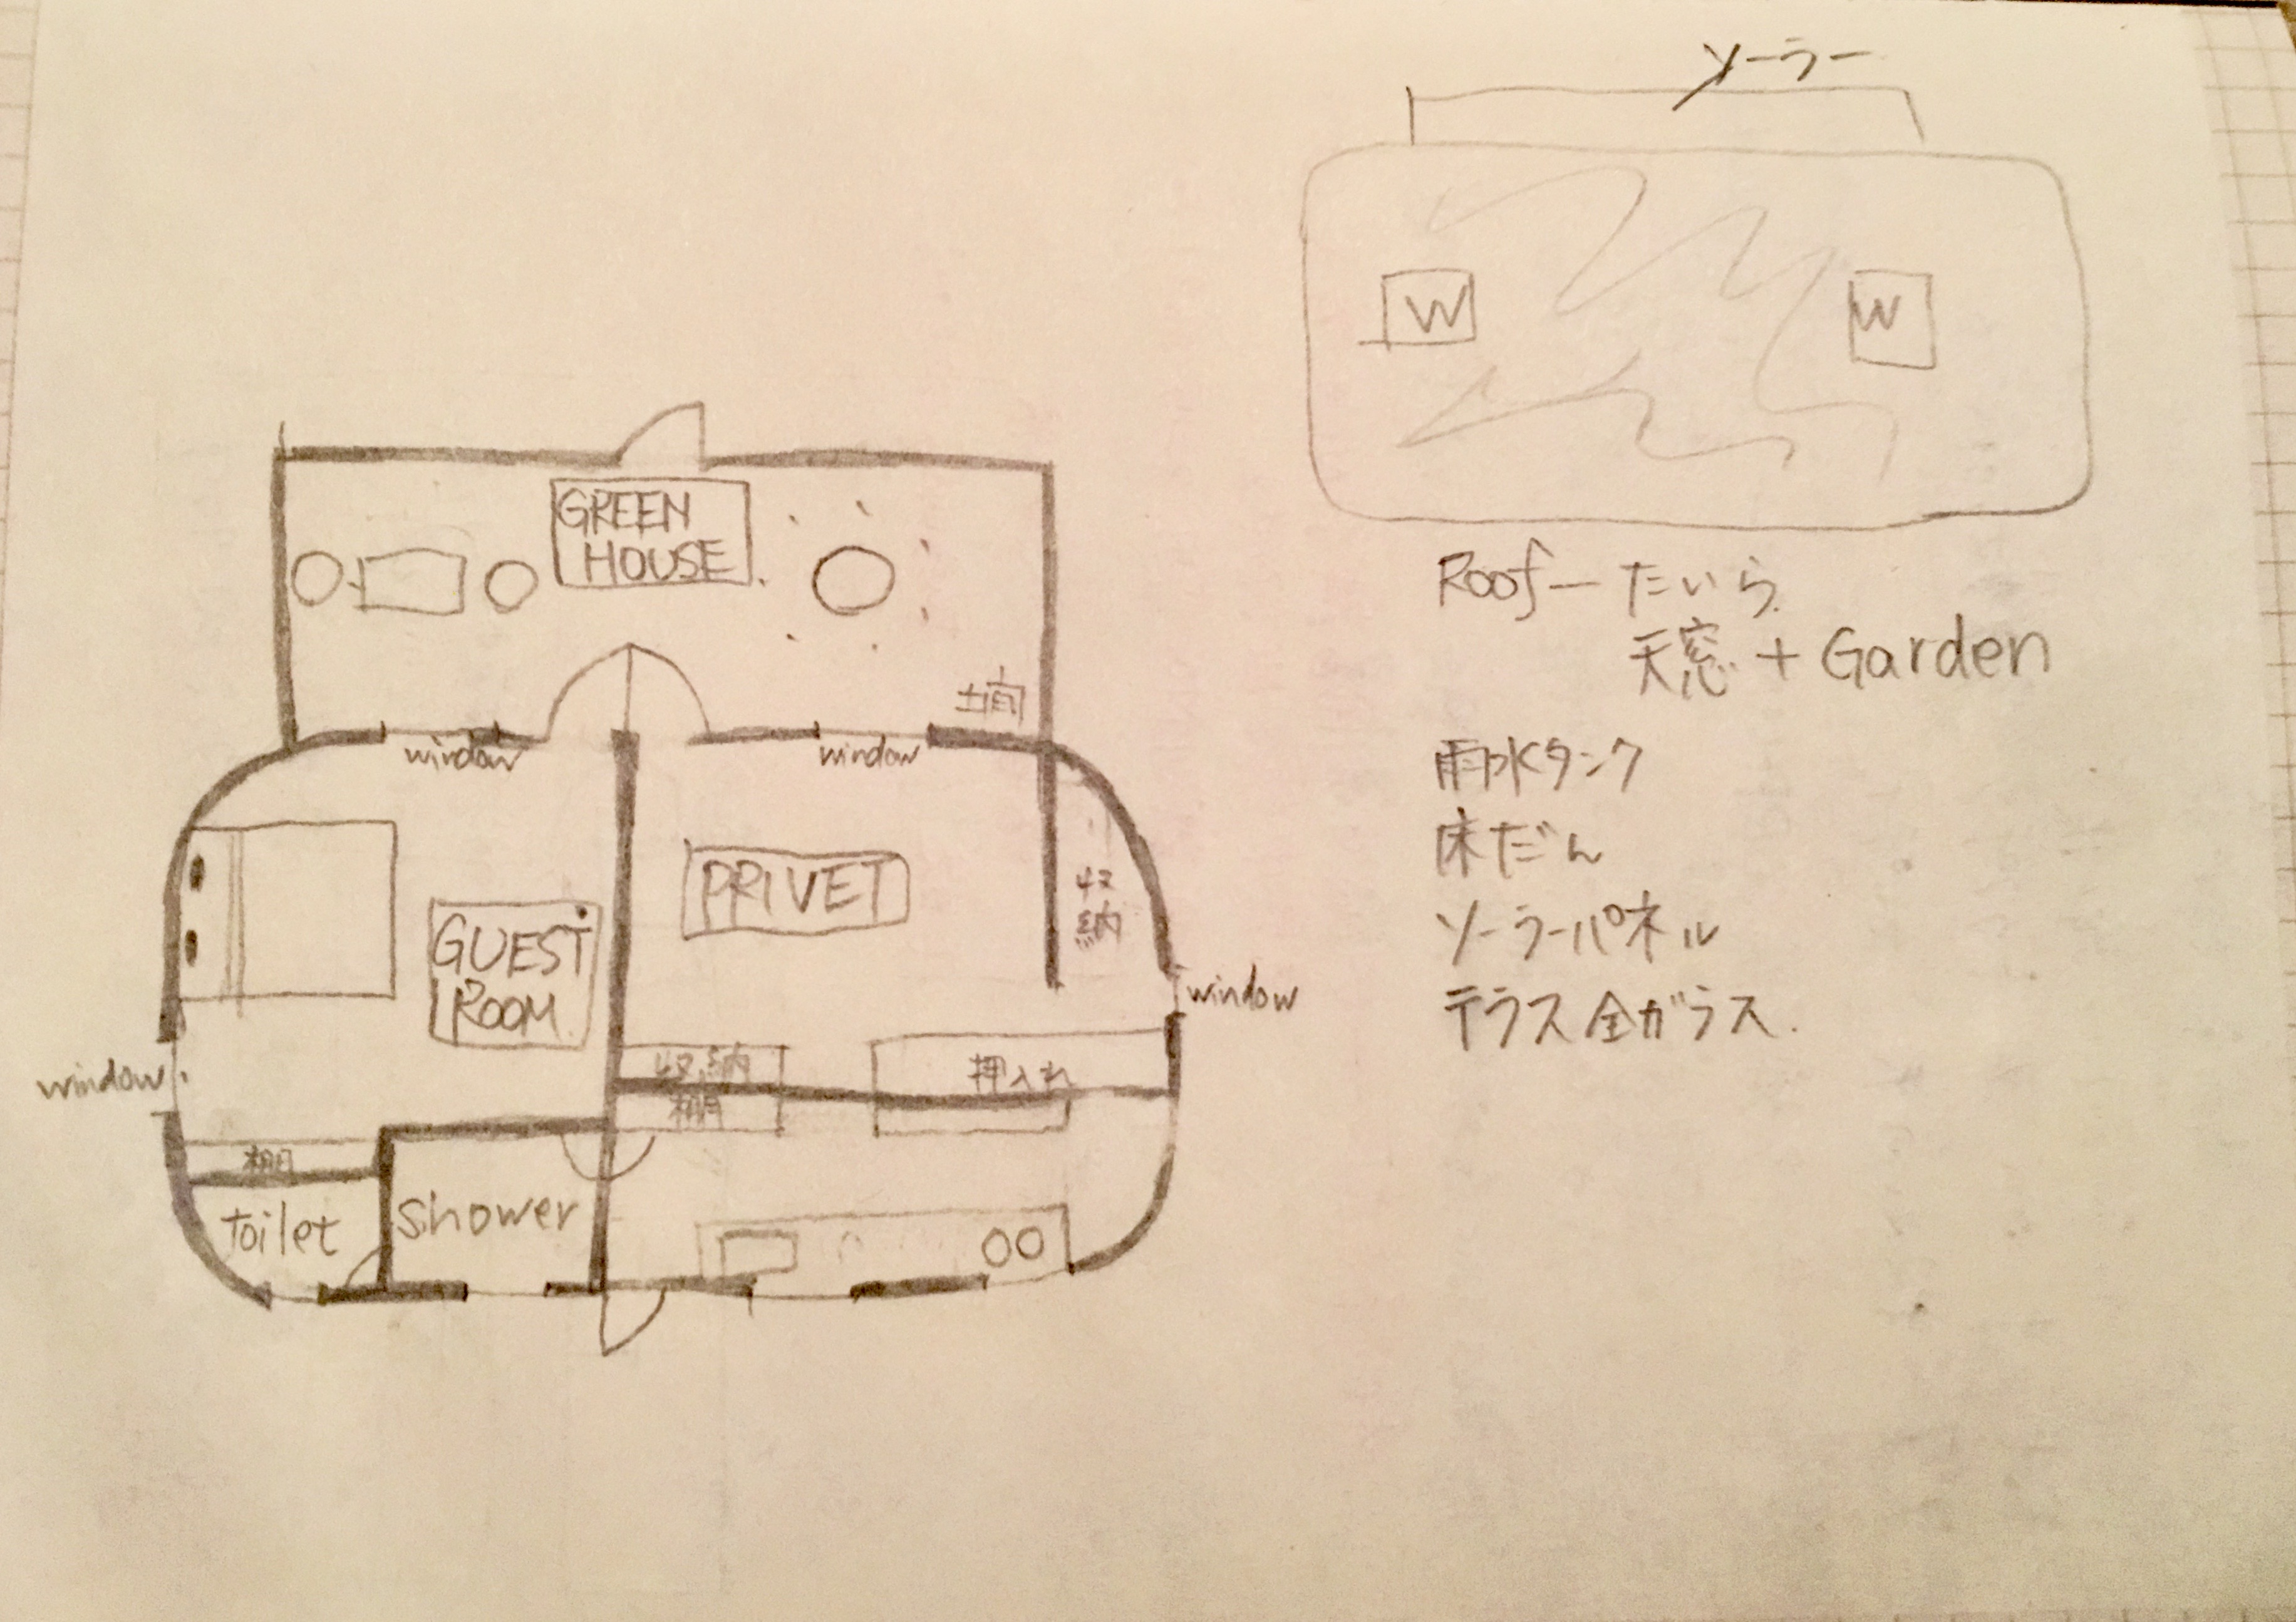 ソーラー
W
W
GREEN
HOUSE
土間
window
window
PRIVET
収
納
GUEST
ROOM
window
window
収納
棚
押入れ
棚
toilet
shower
Roof ー たいら
天窓 + Garden
雨水タンク
床だん
ソーラーパネル
テラス全ガラス.